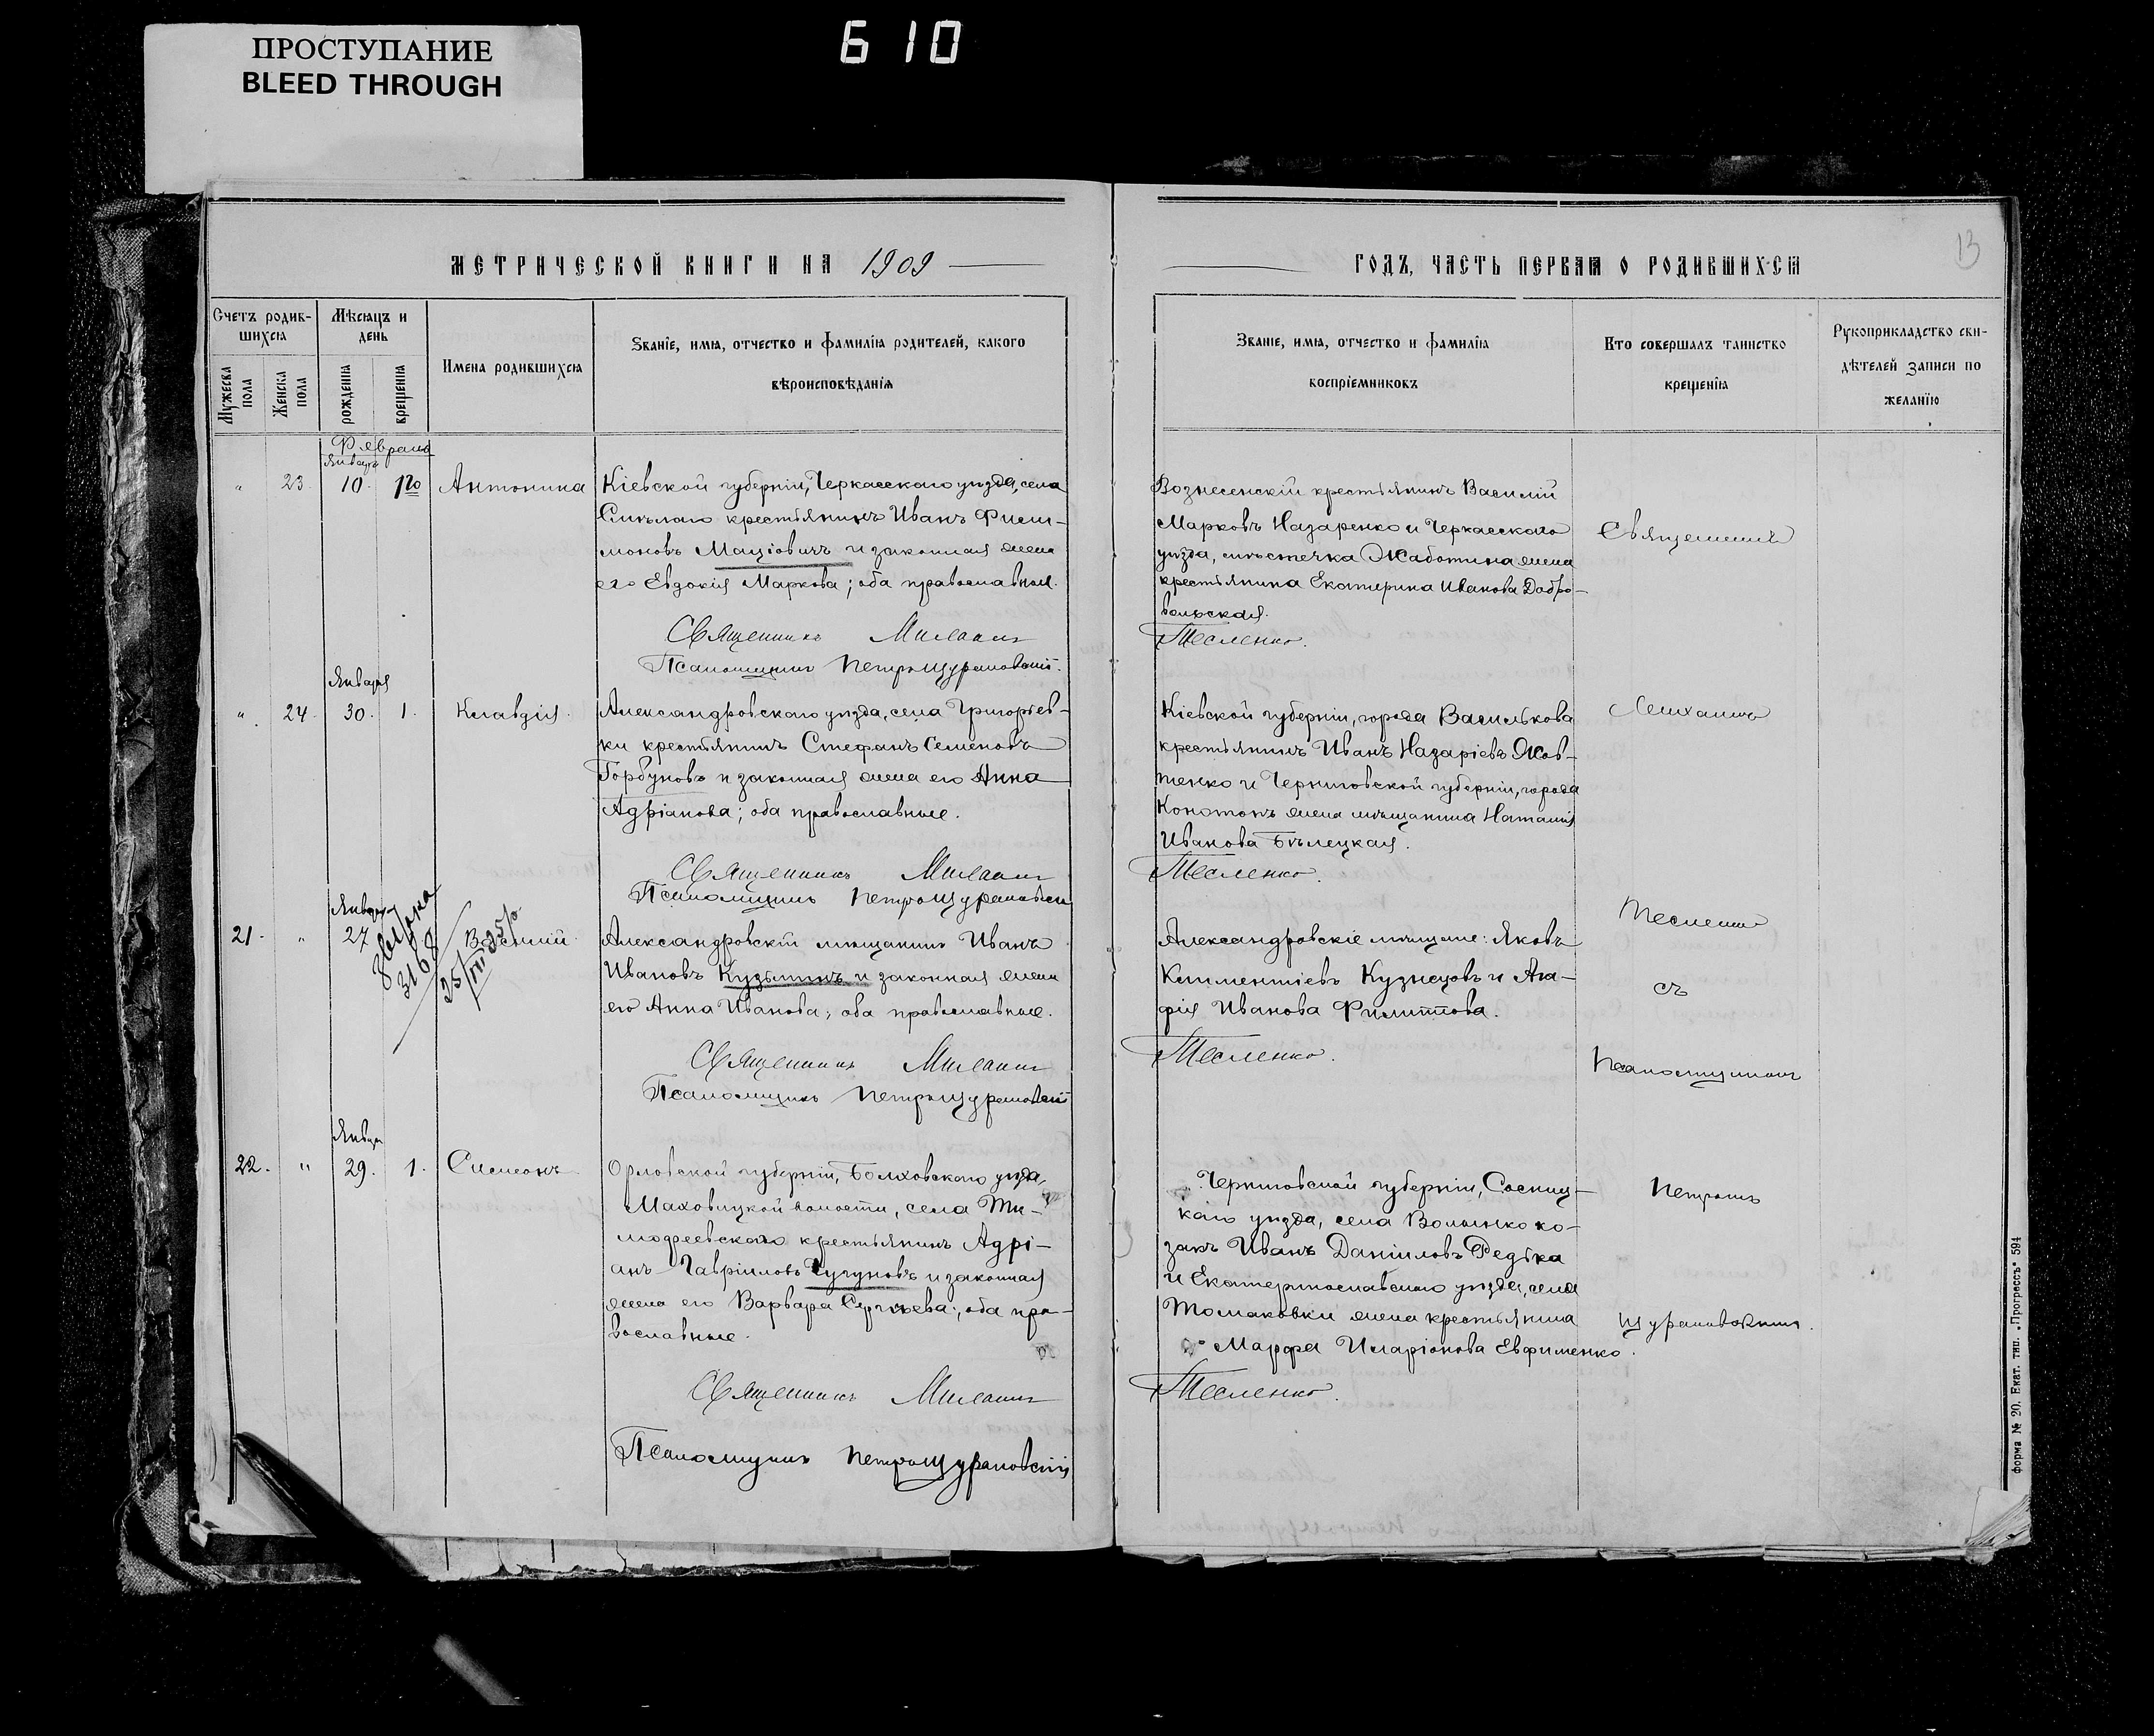 ПРОСТУПАНИЕ
BLEED THROUGH
610
МЕТРИЧЕСКОЙ КНИГИ НА 1909
Счетъ родив-
шихся
Мужеска
пола
Женска
пола
Мѣсяцъ и
день
рожденія
крещенія
Имена родившихся
Званіе, имя, отчество и фамилія родителей, какого
вѣроисповѣданія
Февраль
Января
23 10 1го Антонина
Кіевской губерніи, Черкасскаго уѣзда, села
Смѣлаго крестьянинъ Иванъ Фили-
моновъ и законная жена
его Евдокія Маркова; оба православные.
Священникъ
Псаломщикъ Петръ Щурановскій
Января
24 30 1 Клавдія
Александровскаго уѣзда, села Григорьев-
ки крестьянинъ Стефанъ Семеновъ
Горбуновъ и законная жена его Анна
Адріанова; оба православные.
Священникъ
Псаломщикъ Петръ Щурановскій
Января
21 27 Василій
3168
Александровскій мѣщанинъ Иванъ
Ивановъ Кузьминъ и законная жена
его Анна Иванова; оба православные.
Священникъ
Псаломщикъ Петръ Щурановскій
Январ
22 29 1 Симеонъ
Орловской губерніи, Болховскаго уѣзда,
волости, села Ти-
мофеевскаго крестьянинъ Адрі-
анъ Гавріиловъ Чугуновъ и законная
жена его Варвара Сергѣева; оба пра-
вославные.
Священникъ
Псаломщикъ Петръ Щурановскій
ГОДЪ, ЧАСТЬ ПЕРВАЯ О РОДИВШИХСЯ
13
Званіе, имя, отчество и фамилія
воспріемниковъ
Кто совершалъ таинство
крещенія
Рукоприкладство сви-
дѣтелей записи по
желанію
Вознесенскій крестьянинъ Василій
Марковъ Назаренко и Черкасскаго
уѣзда, мѣстечка Жаботина жена
крестьянина Екатерина Иванова Добро-
вольская.
Тесленко.
Кіевской губерніи, города Василькова
крестьянинъ Иванъ Назаріевъ Жов-
тенко и Черниговской губерніи, города
Конотопъ жена мѣщанина Наталія
Иванова Бѣлецкая.
Тесленко.
Александровскіе мѣщане: Яковъ
Климентіевъ Кузнецовъ и Ага-
фія Иванова Филиппова.
Тесленко.
Черниговской губерніи, Сосниц-
каго уѣзда, села Волынко ко-
закъ Иванъ Даніиловъ Редька
и Екатеринославскаго уѣзда, села
Томаковки жена крестьянина
Марфа Иларіонова Евфименко.
Тесленко.
Священникъ
съ
Псаломщикомъ
Петромъ
Щурановскимъ.
Форма № 20. Екат. тип. „Прогрессъ" 594